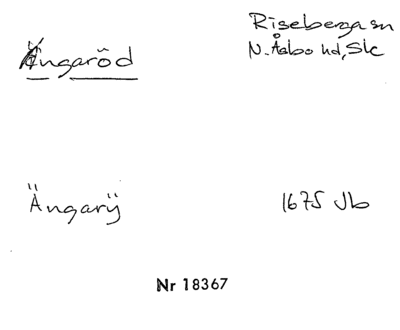 Ängaröd
Riseberga sn
N. Åsbo hd, Slc
Ängarÿ
1675 Jb
Nr 18367